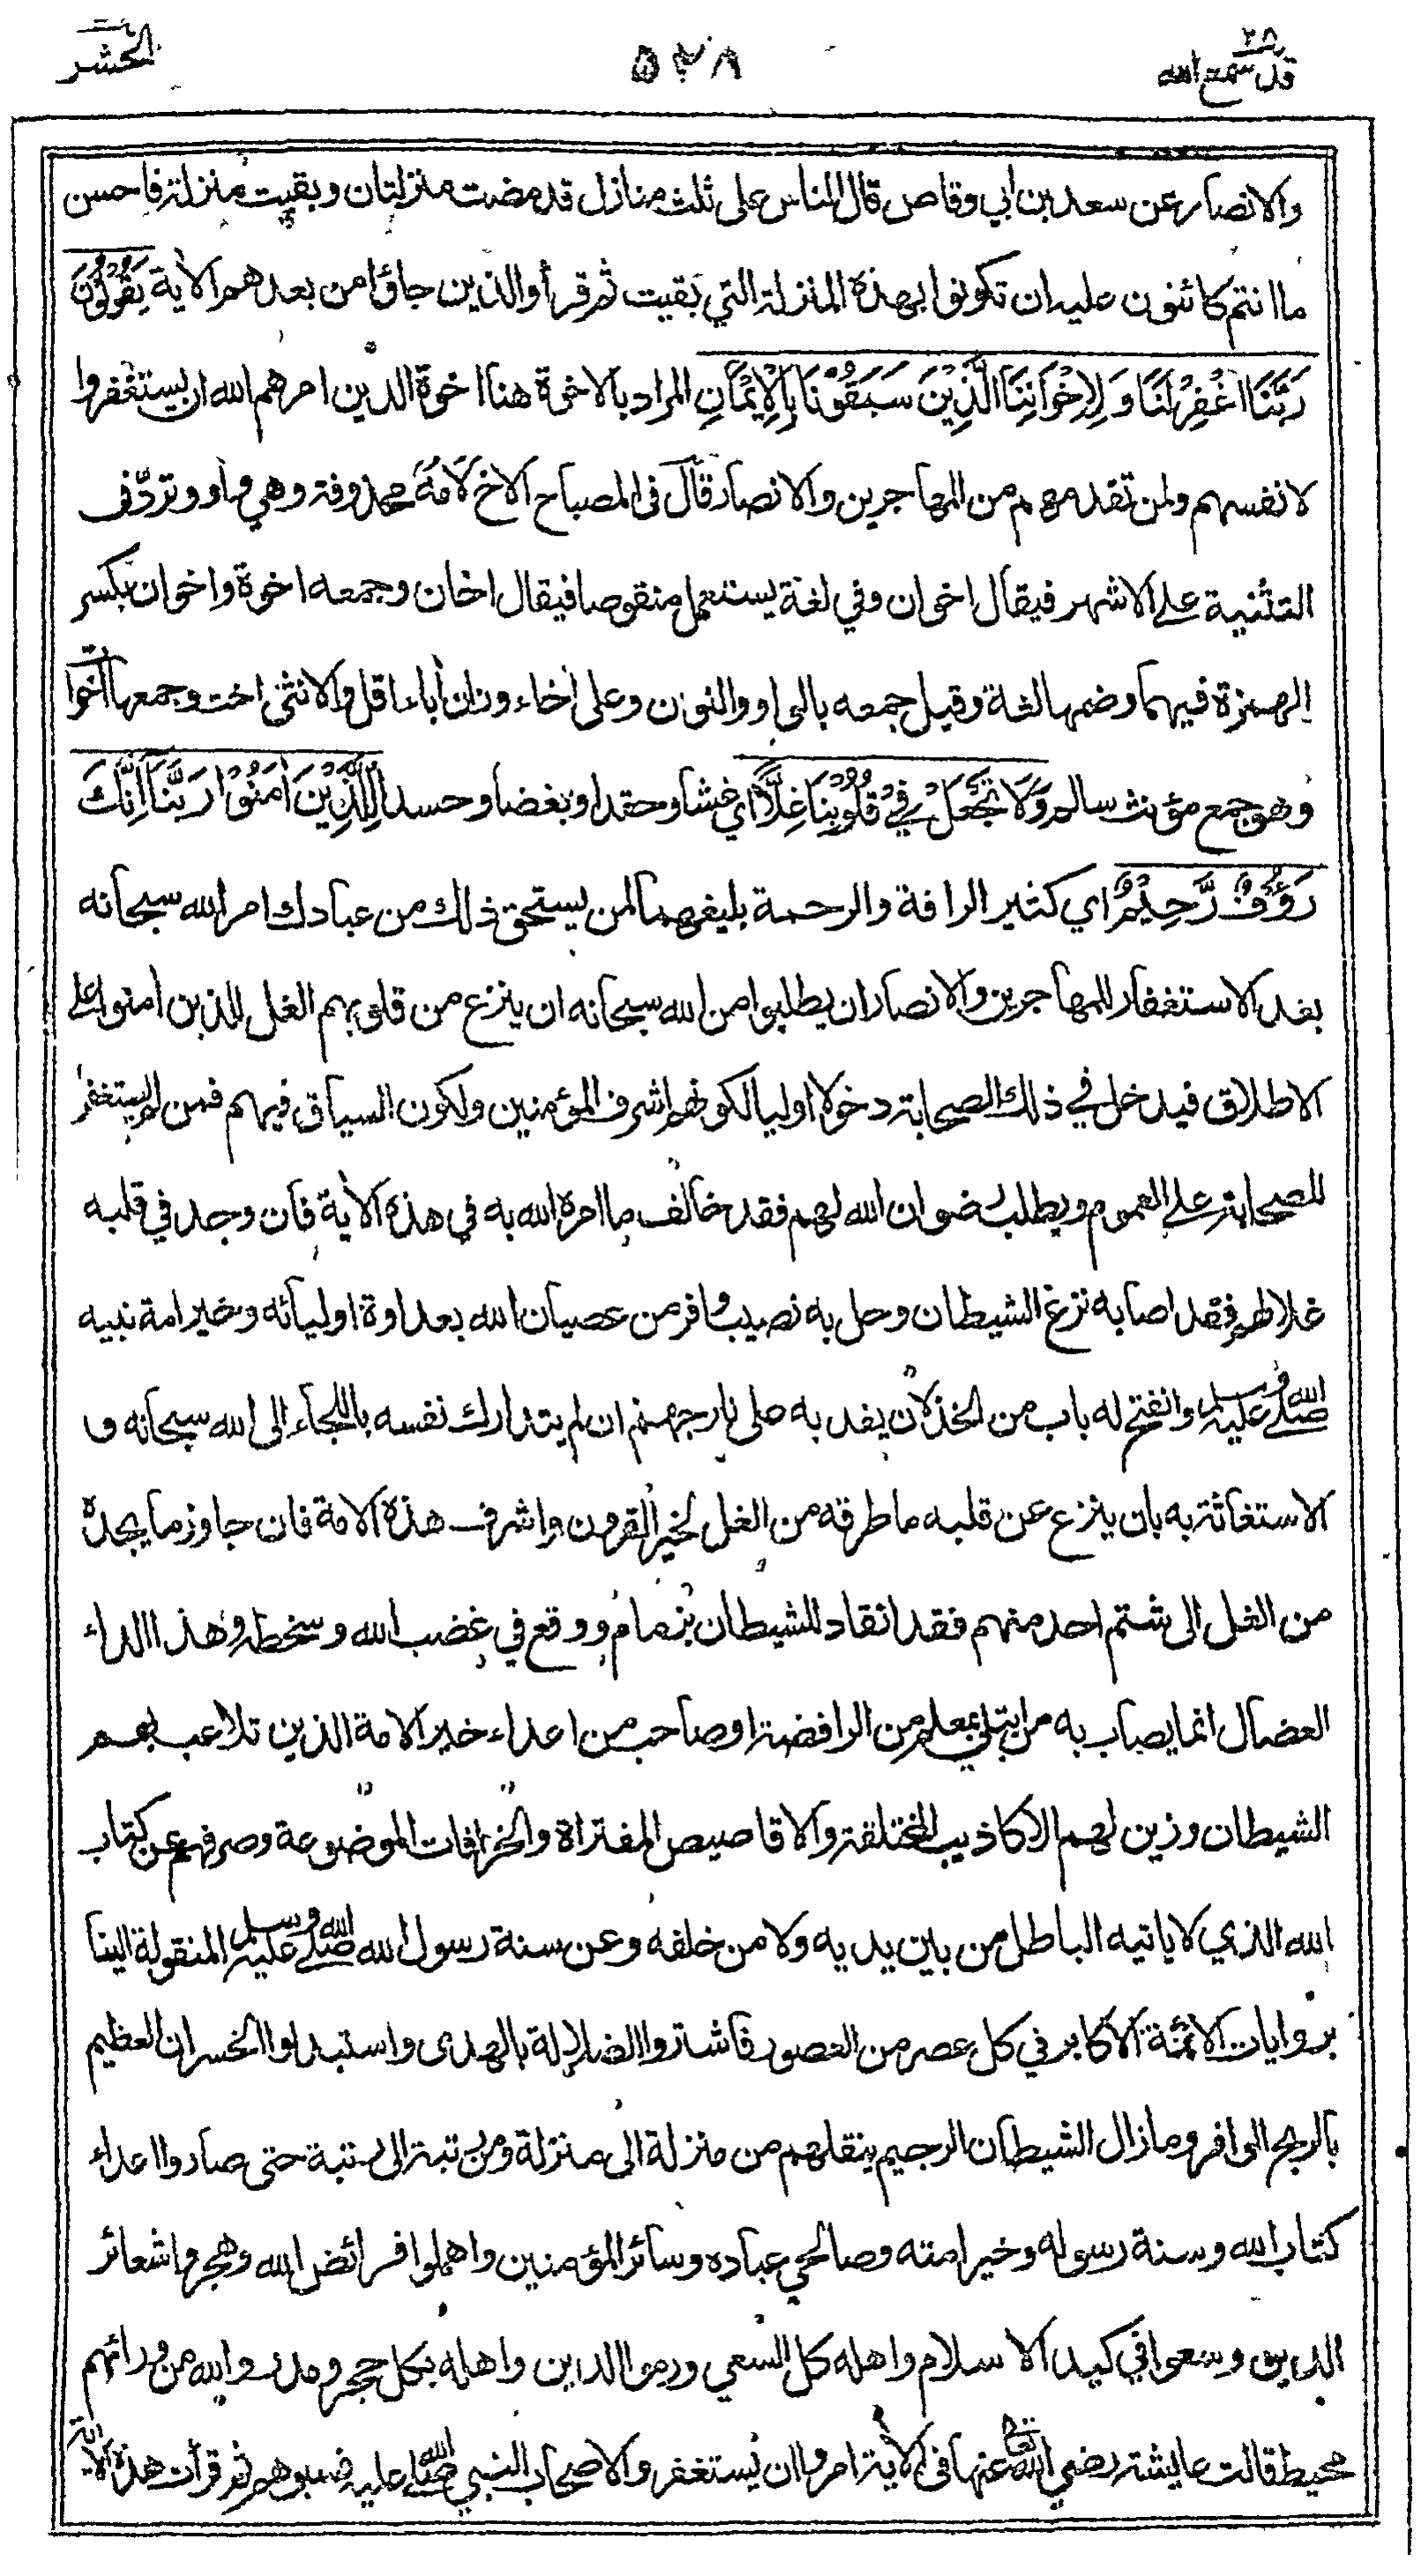 قد سمع الله ٢٨
٥٢٨
الحشر
والانصار عن سعد بن ابي وقاص قال الناس على ثلث منازل قد مضت منزلتان وبقيت منزلة فاحسن
ما انتم كائنون عليه ان تكونوا بهذه المنزلة التي بقيت ثم قرأ والذين جاؤا من بعدهم الأية يَقُوْلُوْنَ
رَبَّنَا اغْفِرْ لَنَا وَلِاِخْوَانِنَا الَّذِيْنَ سَبَقُوْنَا بِالْاِيْمَانِ المراد بالاخوة هنا اخوة الدين امرهم الله ان يستغفروا
لانفسهم ولمن تقدمهم من المهاجرين والانصار قال في المصباح الاخ لامه محذوفة وهي واو وتردّ في
التثنية على الاشهر فيقال اخوان وفي لغة يستعمل منقوصا فيقال اخان وجمعه اخوة واخوان بكسر
الهمزة فيهما وضمها لغة وقيل جمعه بالواو والنون وعلى أخاء وزان أباء اقل والانثى اخت وجمعها اخوات
وهو جمع مؤنث سالم وَلَا تَجْعَلْ فِيْ قُلُوْبِنَا غِلًّا اي غشا وحقدا وبغضا وحسدا لِلَّذِيْنَ اٰمَنُوْا رَبَّنَا اِنَّكَ
رَؤُفٌ رَّحِيْمٌ اي كثير الرافة والرحمة بليغهما لمن يستحق ذلك من عبادك امر الله سبحانه
بعد الاستغفار للمهاجرين والانصار ان يطلبوا من الله سبحانه ان ينزع من قلوبهم الغل للذين امنوا على
الاطلاق فيدخل في ذلك الصحابة دخولا اوليا لكونهم اشرف المؤمنين ولكون السياق فيهم فمن لم يستغفر
للصحابة على العموم ويطلب رضوان الله لهم فقد خالف ما امره الله به في هذه الأية فان وجد في قلبه
غلا لهم فقد اصابه نزغ الشيطان وحل به نصيب وافر من عصيان الله بعداوة اوليائه وخير امة نبيه
صلى الله عليه وسلم وانفتح له باب من الخذلان يفد به على نار جهنم ان لم يتدارك نفسه باللجاء الى الله سبحانه و
الاستغاثة به بان ينزع عن قلبه ما طرقه من الغل لخير القرون واشرف هذه الامة فان جاوز ما يجده
من الغل الى شتم احد منهم فقد انقاد للشيطان بزمام ووقع في غضب الله وسخطه وهذا الداء
العضال انما يصاب به من ابتلي بمعلم من الرافضة او صاحب من اعداء خير الامة الذين تلاعب بهم
الشيطان وزين لهم الاكاذيب المختلقة والاقاصيص المفتراة والخرافات الموضوعة وصرفهم عن كتاب
الله الذي لا ياتيه الباطل من بين يديه ولا من خلفه وعن سنة رسول الله صلى الله عليه وسلم المنقولة الينا
بروايات الائمة الاكابر في كل عصر من العصور فاشتروا الضلالة بالهدى واستبدلوا الخسران العظيم
بالربح الوافر وما زال الشيطان الرجيم ينقلهم من منزلة الى منزلة ومن رتبة الى رتبة حتى صاروا اعداء
كتاب الله وسنة رسوله وخير امته وصالحي عباده وسائر المؤمنين واهملوا فرائض الله وهجروا شعائر
الدين وسعوا في كيد الاسلام واهله كل السعي ورموا الدين واهله بكل حجر ومدر والله من ورائهم
محيط قالت عايشة رضي الله تعالى عنها في الأية امروا ان يستغفروا لاصحاب النبي صلى الله عليه فسبوهم ثم قرأت هذه الأية